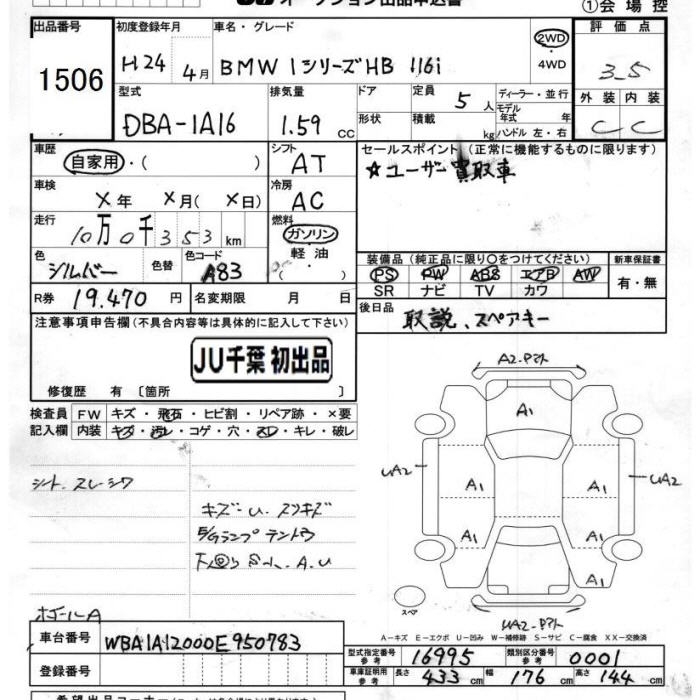 ①会場控
出品番号 1506
初度登録年月 H24 4月
車名・グレード BMW 1シリーズHB 116i
2WD ・4WD
評価点 3.5
型式 DBA-1A16
排気量 1.59 CC
ドア 形状
定員 5人
積載 kg
ディーラー・並行
モデル年式 年式
ハンドル 左・右
外装 C 内装 C
車歴 自家用・( )
シフト AT
セールスポイント (正常に機能するものに限ります)
☆ユーザー買取車
車検 X年 X月( X日)
冷房 AC
走行 10万0千353km
燃料 ガソリン ・ 軽油 ・ ( )
色 シルバー 色替 色コード A83
装備品 (純正品に限り○をつけてください) 新車保証書
PS PW ABS エアB AW 有・無
SR ナビ TV カワ
R券 19.470 円 名変期限 月 日
後日品 取説、スペアキー
注意事項申告欄 (不具合内容等は具体的に記入して下さい)
JU千葉 初出品
修復歴 有 〔箇所 〕
検査員記入欄 FW キズ・飛石・ヒビ割・リペア跡・×要
内装 キズ・汚レ・コゲ・穴・スレ・キレ・破レ
シート スレ シワ
キズ・U. スリキズ
ホイールA
A1
A1
A1
A1
A1
A1
UA2
UA2
スペア
A-キズ E-エクボ U-凹み W-補修跡 S-サビ C-腐食 XX-交換済
車台番号 WBA1A12000E950783
登録番号
型式指定番号 参考 16995 類別区分番号 参考 0001
車庫証明用 参考 長さ 433cm 幅 176cm 高さ 144cm